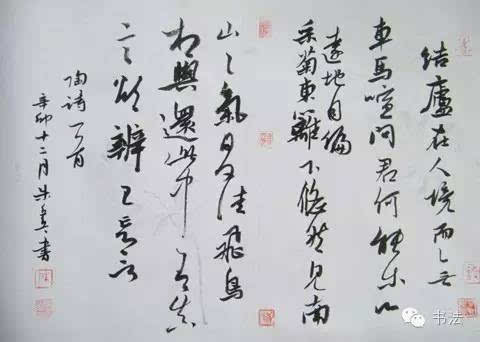 结廬在人境而无
車馬喧問君何能尔心
遠地自偏
采菊東籬下悠然見南
山々氣日夕佳飛鳥
相與還此中有真
意欲辨已忘言
陶詩一首
辛卯十二月朱書
书法